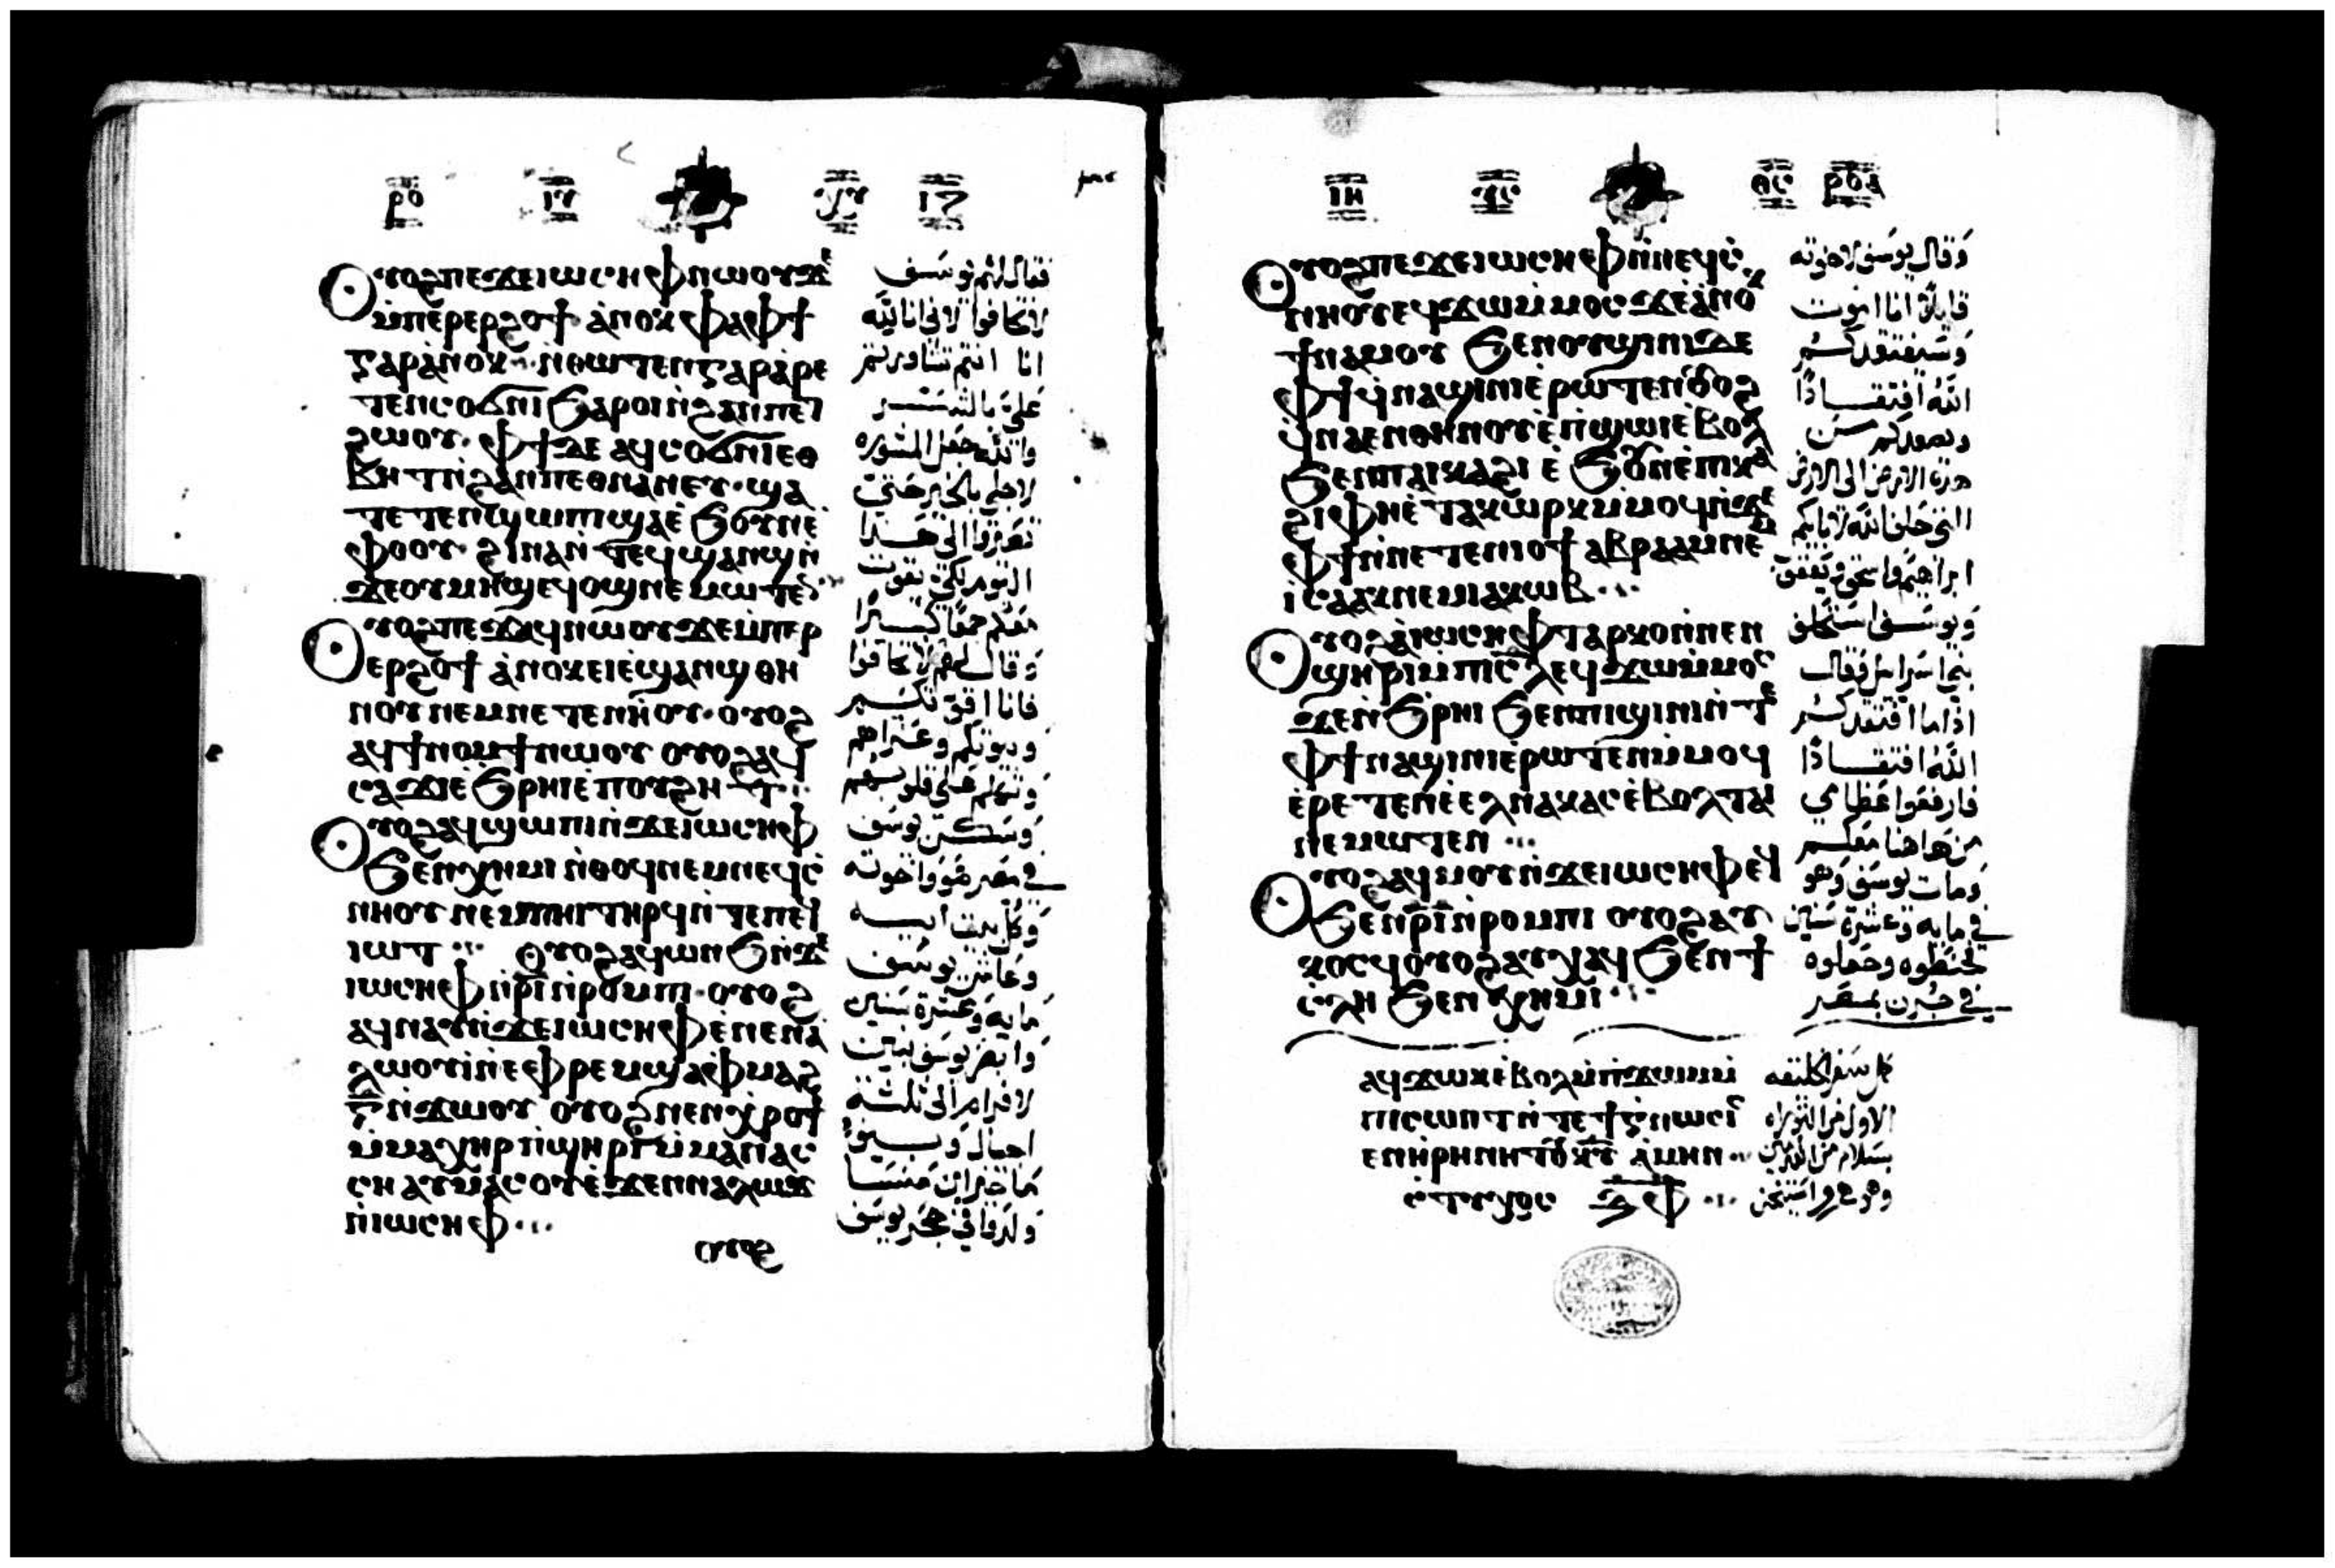 ⲣⲟ
ⲟⲩⲟϩ ⲡⲉϫⲉ ⲓⲱⲥⲏⲫ ⲛⲱⲟⲩ ϫⲉ
ⲙⲡⲉⲣⲉⲣϩⲟϯ ⲁⲛⲟⲕ ⲫⲁⲫϯ
ⲅⲁⲣ ⲁⲛⲟⲕ ⲛⲑⲱⲧⲉⲛ ⲅⲁⲣ ⲁⲣⲉ
ⲧⲉⲛⲥⲟϭⲛⲓ ϧⲁⲣⲟⲓ ⲛϩⲁⲛⲡⲉⲧ
ϩⲱⲟⲩ ⲫϯ ⲇⲉ ⲁϥⲥⲟϭⲛⲓ ⲉⲑ
ⲃⲏⲧ ⲛϩⲁⲛⲡⲉⲑⲛⲁⲛⲉⲩ ϣⲁ
ⲧⲉⲧⲉⲛϣⲱⲡⲓ ϣⲁ ⲉϧⲟⲩⲛ ⲉ
ⲫⲟⲟⲩ ϩⲓⲛⲁ ⲛⲧⲉϥϣⲁⲛϣ ⲛ
ϫⲉ ⲟⲩⲙⲏϣ ⲉϥⲟϣ ⲛⲉⲙⲱⲧⲉⲛ
ⲟⲩⲟϩ ⲡⲉϫⲁϥ ⲛⲱⲟⲩ ϫⲉ ⲙⲡⲉⲣ
ⲉⲣϩⲟϯ ⲁⲛⲟⲕ ⲉⲓⲉϣⲁⲛϣ ⲑⲏ
ⲛⲟⲩ ⲛⲉⲙ ⲛⲉⲧⲉⲛⲏⲟⲩ ⲟⲩⲟϩ
ⲁϥϯⲛⲟⲙϯ ⲛⲱⲟⲩ ⲟⲩⲟϩ ⲁϥ
ⲥⲁϫⲓ ⲉϧⲣⲏⲓ ⲉⲡⲟⲩϩⲏⲧ
ⲟⲩⲟϩ ⲁϥϣⲱⲡⲓ ⲛϫⲉ ⲓⲱⲥⲏⲫ
ϧⲉⲛ ⲭⲏⲙⲓ ⲛⲑⲟϥ ⲛⲉⲙ ⲛⲉϥⲥ
ⲛⲏⲟⲩ ⲛⲉⲙ ⲡⲏⲓ ⲧⲏⲣϥ ⲛⲧⲉ ⲡⲉϥ
ⲓⲱⲧ ⲟⲩⲟϩ ⲁϥⲱⲛϧ ⲛϫⲉ
ⲓⲱⲥⲏⲫ ⲛⲣⲓ ⲛⲣⲟⲙⲡⲓ ⲟⲩⲟϩ
ⲁϥⲛⲁⲩ ⲛϫⲉ ⲓⲱⲥⲏⲫ ⲉⲛⲉⲛⲁ
ⲗⲱⲟⲩⲓ ⲛⲉⲫⲣⲉⲙ ϣⲁ ⲫⲙⲁϩ
ⲅ ⲛϫⲱⲟⲩ ⲟⲩⲟϩ ⲛⲉⲛϣⲏⲣⲓ
ⲙⲙⲁⲭⲏⲣ ⲡϣⲏⲣⲓ ⲙⲙⲁⲛⲁⲥ
ⲥⲏ ⲁⲩⲙⲁⲥⲟⲩ ⲉϫⲉⲛ ⲛⲁⲗⲱϫ
ⲛⲓⲱⲥⲏⲫ
ⲟⲩⲟϩ
فقال لهم يوسف
لا تخافوا لاني انا لله
انا انتم تشاورتم
علي بالشر
والله جعل المشوره
لاجلي بالخير حتى
تصيروا الى هذا
اليوم لكي يقوت
منكم جمعا كثيرا
وقال لهم لا تخافوا
فانا اقوتكم
وبيوتكم وعزاهم
وتكلم على قلوبهم
وسكن يوسف
في مصر هو واخوته
وكل بيت ابيه
وعاش يوسف
مايه وعشرة سنين
وابصر يوسف بنين
لافرام الى ثلثه
اجيال وبنو
ماخير ابن منسا
ولدوا في حجر يوسف
ⲓⲏ
ⲣⲟⲁ
ⲟⲩⲟϩ ⲡⲉϫⲉ ⲓⲱⲥⲏⲫ ⲛⲛⲉϥⲥ
ⲛⲏⲟⲩ ⲉϥϫⲱ ⲙⲙⲟⲥ ϫⲉ ⲁⲛⲟⲕ
ϯⲛⲁⲙⲟⲩ ϧⲉⲛ ⲟⲩϣⲓⲛⲓ ⲇⲉ
ⲫϯ ϥⲛⲁϣⲓⲛⲓ ⲉⲣⲱⲧⲉⲛ ⲟⲩⲟϩ
ϥⲛⲁⲉⲛ ⲑⲏⲛⲟⲩ ⲉⲡϣⲱⲓ ⲉⲃⲟⲗ
ϧⲉⲛ ⲡⲁⲓⲕⲁϩⲓ ⲉϧⲟⲩⲛ ⲉⲡⲕⲁ
ϩⲓ ⲫⲏ ⲉⲧⲁϥⲱⲣⲕ ⲙⲙⲟϥ ⲛϫⲉ
ⲫϯ ⲛⲛⲉⲧⲉⲛⲓⲟϯ ⲁⲃⲣⲁⲁⲙ ⲛⲉⲙ
ⲓⲥⲁⲁⲕ ⲛⲉⲙ ⲓⲁⲕⲱⲃ
ⲟⲩⲟϩ ⲁ ⲓⲱⲥⲏⲫ ⲧⲁⲣⲕⲟ ⲛⲛⲉⲛ
ϣⲏⲣⲓ ⲙⲡⲓⲥⲗ ⲉϥϫⲱ ⲙⲙⲟⲥ
ϫⲉ ⲛϧⲣⲏⲓ ϧⲉⲛ ⲡⲓϣⲓⲛⲓ ⲛⲧⲉ
ⲫϯ ⲛⲁϣⲓⲛⲓ ⲉⲣⲱⲧⲉⲛ ⲙⲙⲟϥ
ⲉⲣⲉⲧⲉⲛⲉⲉⲗ ⲛⲁⲕⲁⲥ ⲉⲃⲟⲗ ⲧⲁⲓ
ⲛⲉⲙⲱⲧⲉⲛ
ⲟⲩⲟϩ ⲁϥⲙⲟⲩ ⲛϫⲉ ⲓⲱⲥⲏⲫ ⲉϥ
ϧⲉⲛ ⲣⲓ ⲛⲣⲟⲙⲡⲓ ⲟⲩⲟϩ ⲁⲩ
ⲕⲟⲥϥ ⲟⲩⲟϩ ⲁⲩⲭⲁϥ ϧⲉⲛ ϯ
ⲥⲗⲏ ϧⲉⲛ ⲭⲏⲙⲓ
ⲁϥϫⲱⲕ ⲉⲃⲟⲗ ⲙⲡϫⲱⲙ
ⲡⲓⲥⲱⲛⲧ
وقال يوسف لاخوته
قايلا انا اموت
وسيفتقدكم
الله افتقادا
ويصعدكم من
هذه الارض الى الارض
التي حلف الله لابايكم
ابراهيم واسحق ويعقوب
ويوسف استحلف
بني اسراييل فقال
اذا ما افتقدكم
الله افتقادا
فارفعوا عظامي
من هاهنا معكم
ومات يوسف وهو
في مايه وعشرة سنين
فحنطوه وجعلوه
في جرن بمصر
كمل سفر الخليقه
الاول من التوراه
بسلام من الرب امين